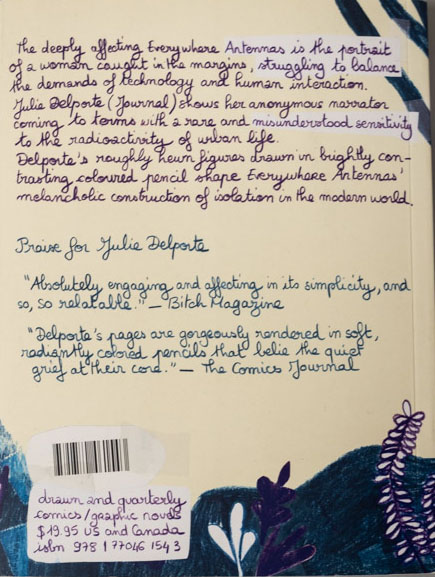 The deeply affecting Everywhere Antennas is the portrait
of a woman caught in the margins, struggling to balance
the demands of technology and human interaction.
Julie Delporte (Journal) shows her anonymous narrator
coming to terms with a rare and misunderstood sensitivity
to the radioactivity of urban life.
Delporte's roughly hewn figures drawn in brightly con-
trasting coloured pencil shape Everywhere Antennas'
melancholic construction of isolation in the modern world.
Praise for Julie Delporte
"Absolutely engaging and affecting in its simplicity, and
so, so relatable." — Bitch Magazine
"Delporte's pages are gorgeously rendered in soft,
radiantly colored pencils that belie the quiet
grief at their core." — The Comics Journal
drawn and quarterly
comics/graphic novels
$19.95 US and Canada
isbn 978 1 77046 154 3